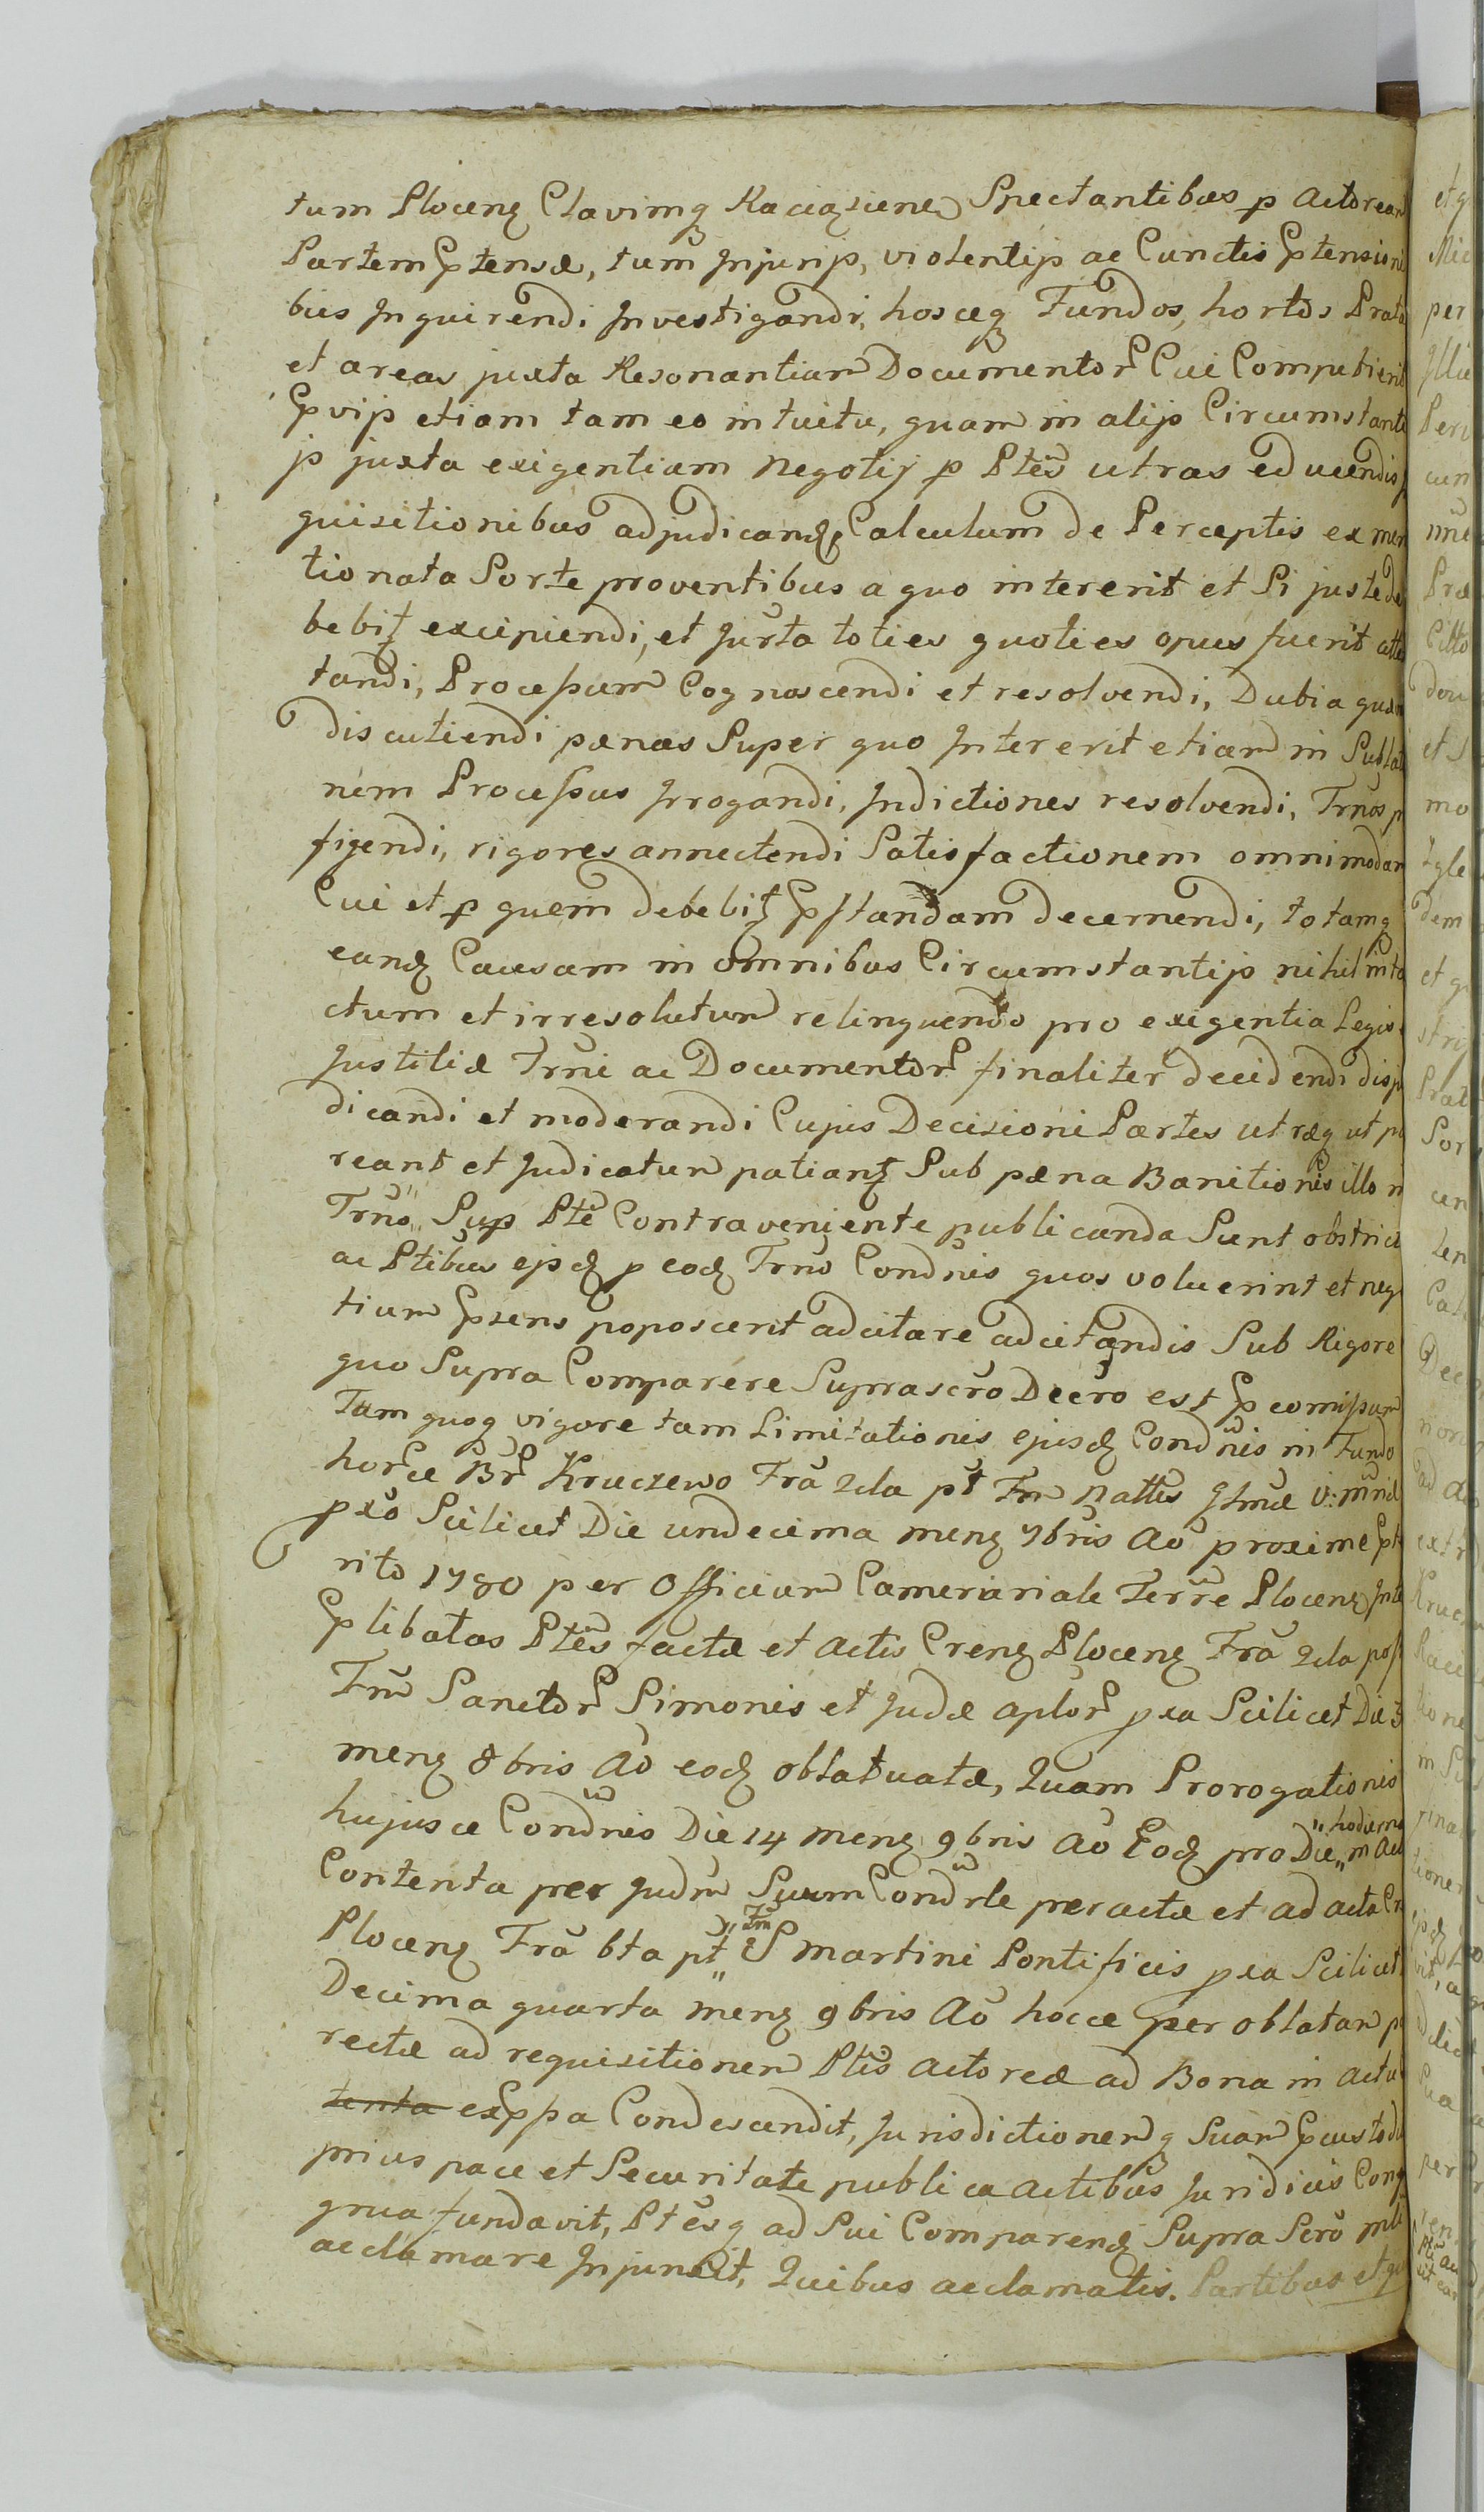 tum Plocenę Clavimq Raciązienę Spectantibus p Actoream
Partem Ptensæ, tum Injurijs, violentijs ac Cunctis Ptensioni
bus Inquirendi Investigandi, hosceq Fundos, hortos Prata
et areas juxta Resonantiam Documentor Cui Computierit
Pvijs etiam tam eo intuitu, quam in alijs Circumstanti
js juxta exigentiam Negotij p Ptes utras educendis
quisitionibus adjudicandę Calculum de Perceptis ex men
tionata Sorte proventibus a quo intererit et Si juste de
bebitz excipiendi, et Jurta toties quoties opus fuerit atte
tandi, Processum Cognoscendi et resolvendi, Dubia quæ
discutiendi pænas Super quo Intererit etiam in Sublat
nem Processus Irrogandi, Indictiones resolvendi, Trnos p
figendi, rigores annectendi Satisfactionem omnimodam
Cui et p quem debebitz Pstandam decernendi, totamq
eandę Causam in omnibus Circumstantijs nihil inta
ctum et irresolutum relinquendo pro exigentia Legis
Justitiæ Trni ac Documentor finaliter decidendi disju
dicandi et moderandi Cujus Decisioni Partes utræq ut pa
reant et Judicatum patiantz Sub pæna Banitionis illo in
Trno Sup Pte Contraveniente publicanda Sunt obstrict
ac Ptibus ejsdę p eodę Trno Condnis quos voluerint et neg
tium Psens poposcerit adcitare adcitandis Sub Rigore
quo Supra Comparere Suprascro Decro est Pcomissum
Tam quoq vigore tam Limitationis ejusdę Condnis in Fundo
horce Br Kruczewo Fra 2da pt Fm Nattis Glmæ V: Mriæ
pxo Scilicet Die undecima mensę 7bris Ao proxime Pte
rito 1780 per Officium Camerariale Terræ Plocenę Inte
Plibatas Ptes factæ et Actis Crenę Plocenę Fra 2da post
Fm Sanctor Simonis et Judæ Aplor pxa Scilicet Die 3
mensę 8bris Ao eodę oblatuatæ, Quam Prorogationis
hujusce Condnis Die 14 mensę 9bris Ao Eodę pro Die „ in Act
„ hodierna
Contenta per Judm Suum Condrle peractæ et ad acta Cr
Plocenę Fra 6ta pt „ S Martini Pontificis pxa Scilicet
„ Fm
Decima quarta mensę 9bris Ao hocce per oblatam p
rectæ ad requisitionem Ptis Actoreæ ad Bona in Actu
tenta exPpa Condescendit, Jurisdictionemq Suam Pcustodi
prius pace et Securitate publica Actibus Juridicis Cong
grua fundavit, Ptesq ad Sui Comparendę Supra Scro Mli
acclamare Injunxit, Quibus acclamatis. Partibus et qu